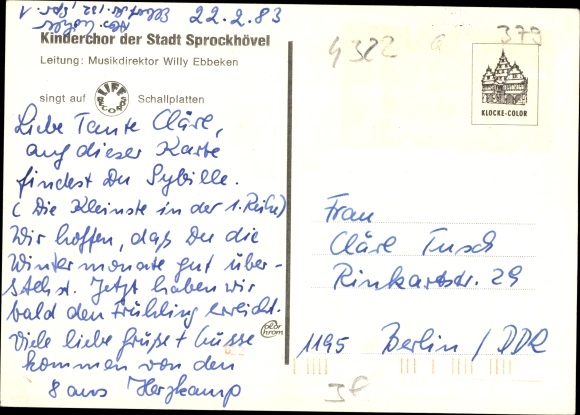 22.2.83
Kinderchor der Stadt Sprockhövel
Leitung: Musikdirektor Willy Ebbeken
singt auf LIFE RECORDS Schallplatten
Liebe Tante Cläre,
auf dieser Karte
findest Du Sybille.
( Die Kleinste in der 1. Reihe)
Wir hoffen, daß Du die
Wintermonate gut über-
stehst. Jetzt haben wir
bald den Frühling erreicht.
Viele liebe Grüße + Küsse
kommen von den
8 aus Herzkamp
color
chrom
4322
379
KLOCKE-COLOR
Frau
Cläre Tusch
Rinkartstr. 29
1195 Berlin / DDR